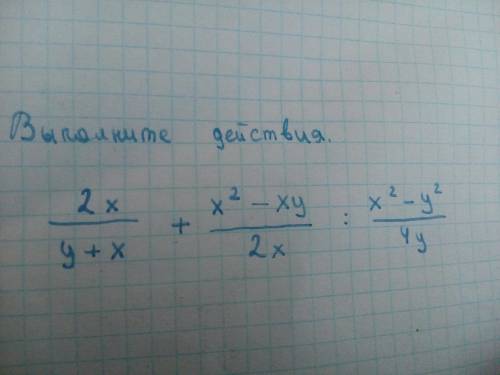 Выполните действия.
2x/(y+x) + (x²-xy)/2x : (x²-y²)/4y